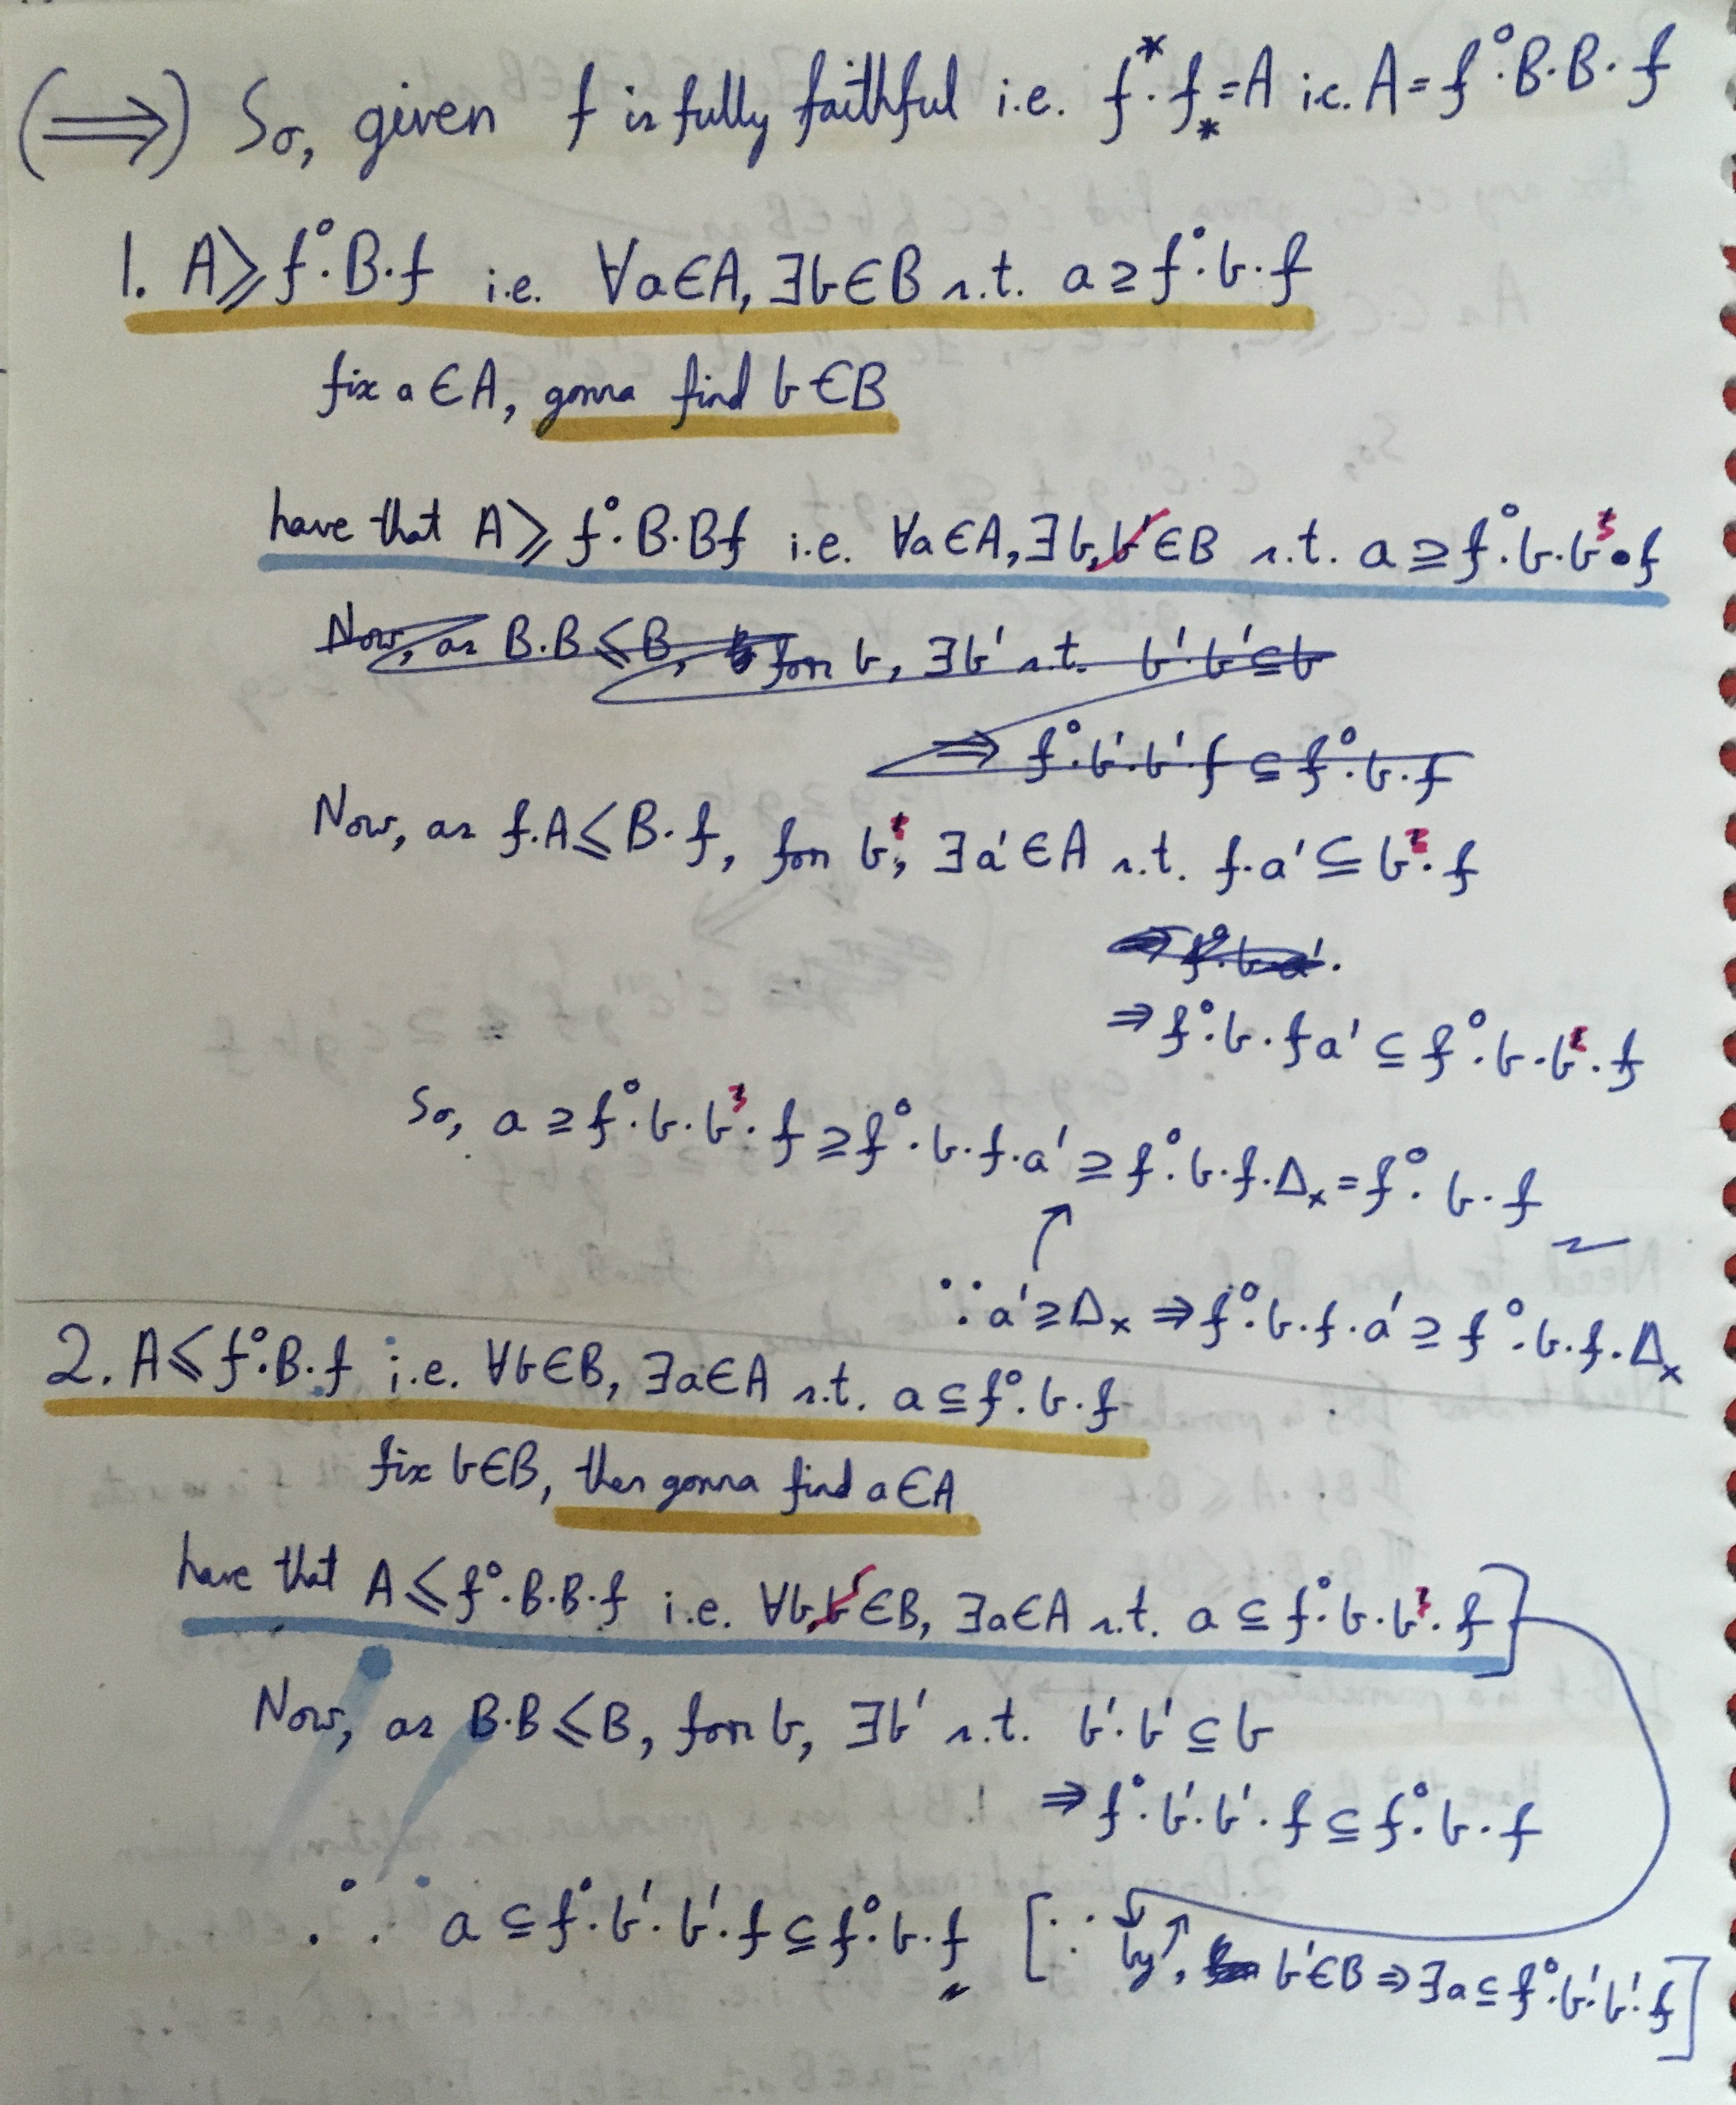 (⟹) So, given f is fully faithful i.e. f^*·f_* = A i.e. A = f°·B·B·f
1. A ≥ f°·B·f i.e. ∀a∈A, ∃b∈B s.t. a ⊇ f°·b·f
fix a∈A, gonna find b∈B
have that A ≥ f°·B·Bf i.e. ∀a∈A, ∃b,b'∈B s.t. a ⊇ f°·b·b·f
Now, as B·B ≤ B, for b, ∃b' s.t. b'·b' ⊆ b
⟹ f°·b'·b'·f ⊆ f°·b·f
Now, as f·A ≤ B·f, for b, ∃a'∈A s.t. f·a' ⊆ b·f
⟹ f°·b·a'.
⟹ f°·b·fa' ⊆ f°·b·b·f
So, a ⊇ f°·b·b·f ⊇ f°·b·f·a' ⊇ f°·b·f·Δ_x = f°·b·f
∵ a' ⊇ Δ_x ⟹ f°·b·f·a' ⊇ f°·b·f·Δ_x
2. A ≤ f°·B·f i.e. ∀b∈B, ∃a∈A s.t. a ⊆ f°·b·f
fix b∈B, then gonna find a∈A
have that A ≤ f°·B·B·f i.e. ∀b,b'∈B, ∃a∈A s.t. a ⊆ f°·b·b·f]
Now, as B·B ≤ B, for b, ∃b' s.t. b'·b' ⊆ b
⟹ f°·b'·b'·f ⊆ f°·b·f
∴ a ⊆ f°·b'·b'·f ⊆ f°·b·f [∵ by ↑, b'∈B ⟹ ∃a ⊆ f°·b'·b'·f]